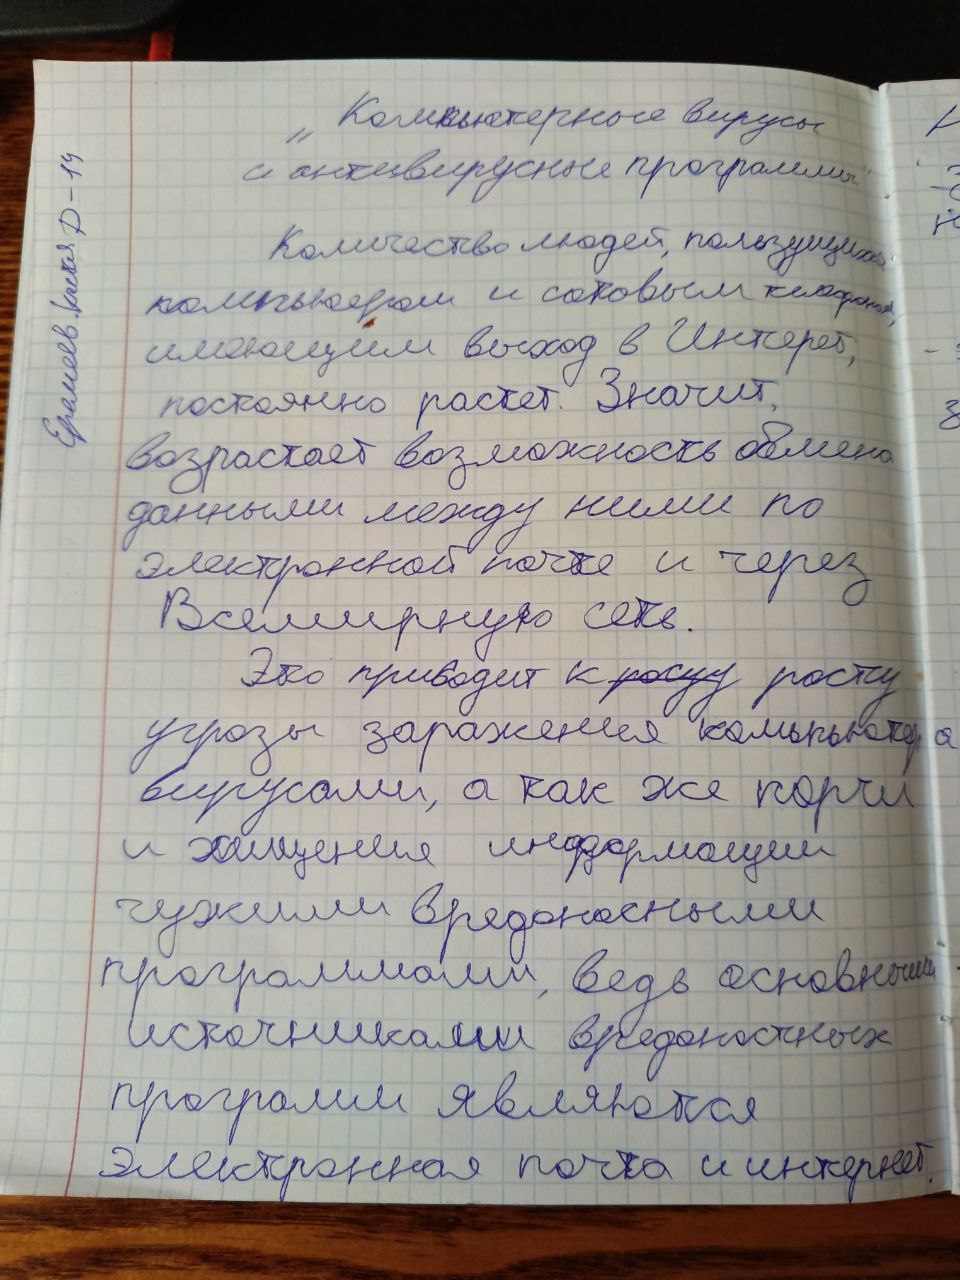 "Компьютерные вирусы
и антивирусные программы"
Количество людей, пользующихся
компьютером и сотовым телефоном,
имеющим выход в Интерет,
постоянно растет. Значит,
возрастает возможность обмена
данными между ними по
электронной почте и через
Всемирную сеть.
Это приводит к росту
угрозы заражения компьютера
вирусами, а так же порчи
и хищения информации
чужими вредоносными
программами, ведь основными
источниками вредоностных
программ являются
электронная почта и интернет.
Д-14